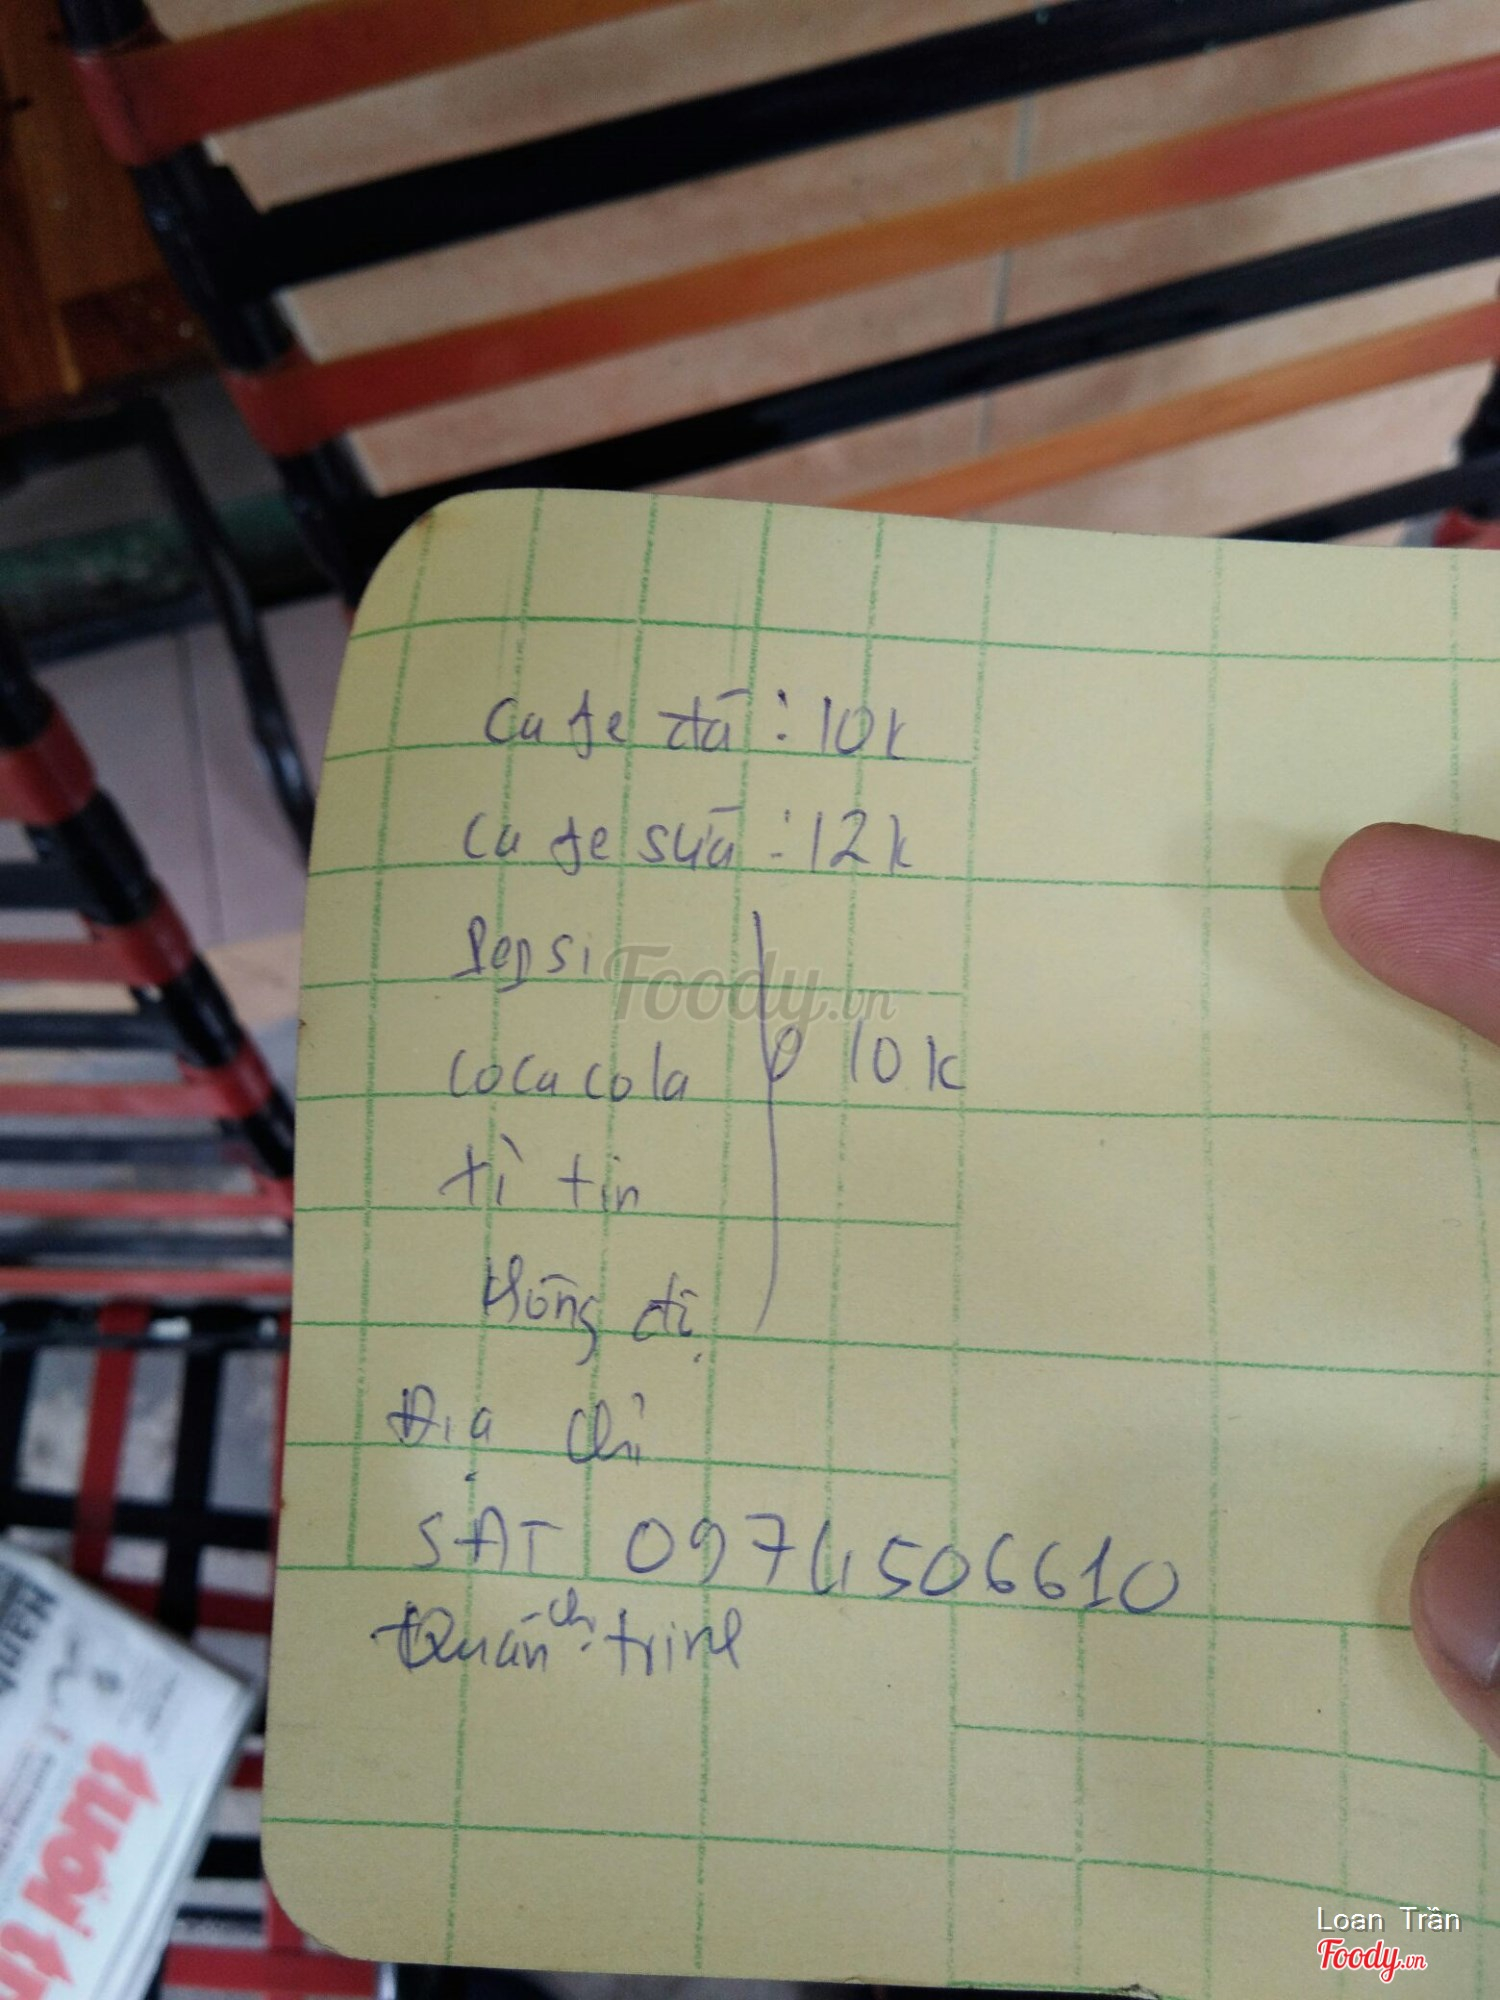 Ca fe đá : 10k
Ca fe sữa : 12k
Pepsi
Foody.vn
Coca cola
10k
tì tin
Hồng
Địa chỉ
SĐT 0974506610
Quán chị trinh
TUỔI
Loan Trần
Foody.vn